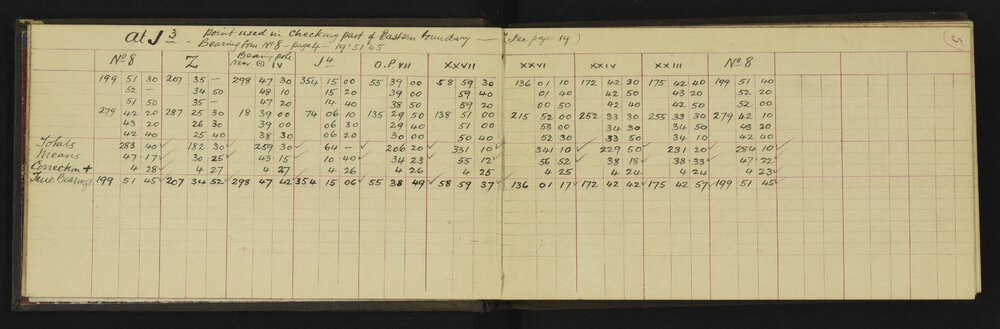 at J 3. Point used in Checking part of Eastern boundary — (See page 19) 5
Bearing from Nº 8 - page 4 - 19°51'45
Nº 8 Z Bearing pole near IV J 4 O.P VII XXVII XXVI XXIV XXIII Nº 8
199 51 30 207 35 — 298 47 30 354 15 00 55 39 00 58 59 30 136 01 10 172 42 30 175 42 40 199 51 40
52 — 34 50 48 10 15 20 39 00 59 40 01 40 42 50 43 20 52 20
51 50 35 — 47 20 14 40 38 50 59 20 00 50 42 40 42 50 52 00
279 42 20 287 25 30 18 39 00 74 06 10 135 29 50 138 51 00 215 52 00 252 33 30 255 33 30 279 42 10
43 20 26 30 39 00 06 30 29 40 51 00 53 00 34 30 34 50 43 20
42 40 25 40 38 30 06 20 30 00 50 40 52 30 33 50 34 10 42 40
Totals 283 40 182 30 259 30 64 — 206 20 331 10 341 10 229 50 231 20 284 10
Means 47 17 30 25 43 15 10 40 34 23 55 12 56 52 38 18 38 33 47 22
Correction + 4 28 4 27 4 27 4 26 4 26 4 25 4 25 4 24 4 24 4 23
True Bearings 199 51 45 207 34 52 298 47 42 354 15 06 55 38 49 58 59 37 136 01 17 172 42 42 175 42 57 199 51 45